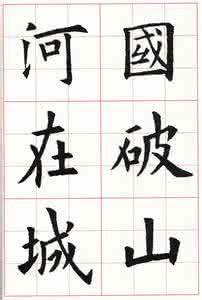 國破山
河在城